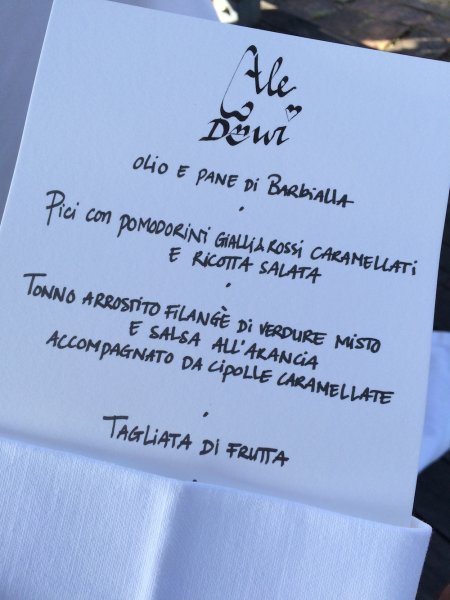 Ale
Dewi
OLIO E PANE DI BARBIALLA
PICI CON POMODORINI GIALLI & ROSSI CARAMELLATI
E RICOTTA SALATA
TONNO ARROSTITO FILANGÈ DI VERDURE MISTO
E SALSA ALL'ARANCIA
ACCOMPAGNATO DA CIPOLLE CARAMELLATE
TAGLIATA DI FRUTTA